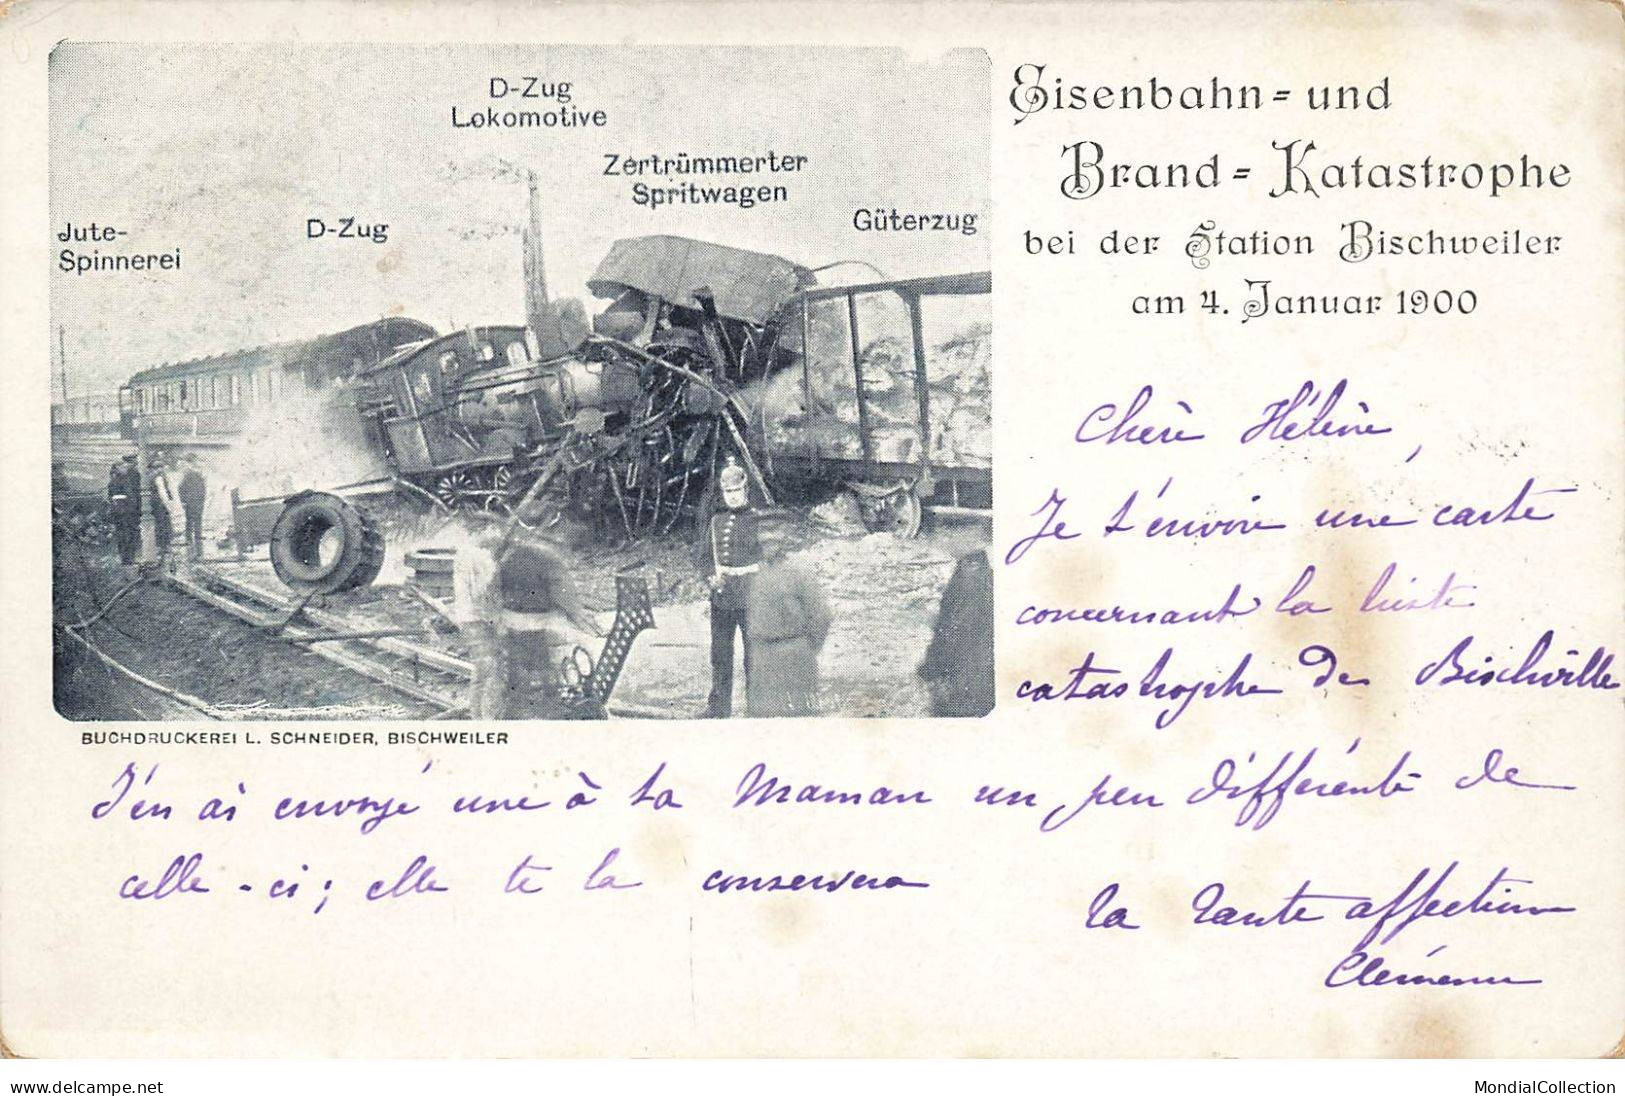 D-Zug
Lokomotive
Zertrümmerter
Spritwagen
Güterzug
D-Zug
Jute-
Spinnerei
Eisenbahn- und
Brand-Katastrophe
bei der Station Bischweiler
am 4. Januar 1900
BUCHDRUCKEREI L. SCHNEIDER, BISCHWEILER
Chère Hélène,
Je t'envoie une carte
concernant la triste
catastrophe de Bischwille
J'en ai envoyé une à ta Maman un peu différente de
celle-ci; elle te la conservera
Ta tante affection
Clémence
www.delcampe.net
MondialCollection